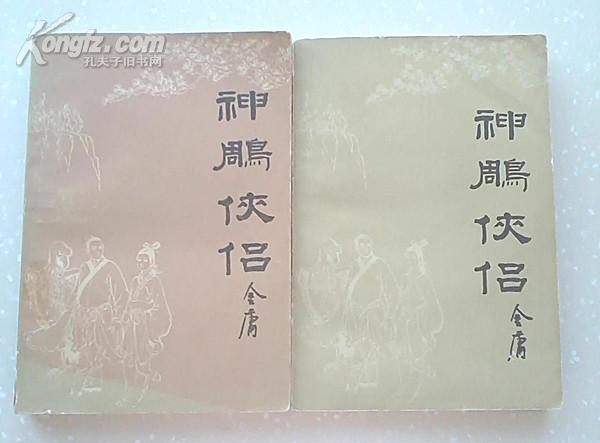 Kongfz.com
孔夫子旧书网
神鵰侠侣
金庸
神鵰侠侣
金庸